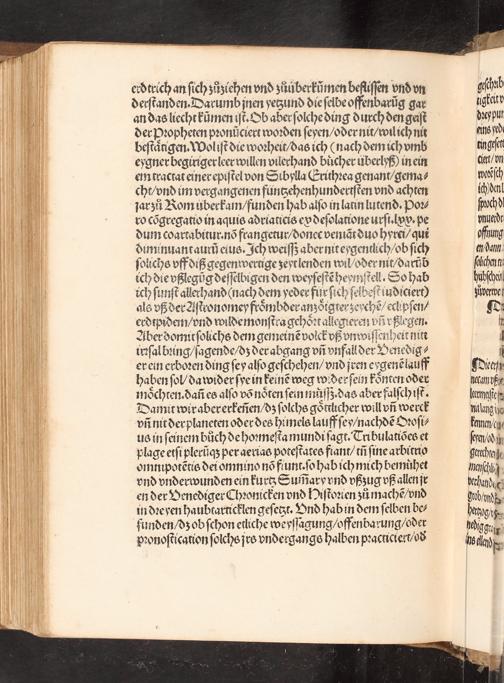 erdtrich an sich zůziehen vnd zůüberkümen beflissen vnd vn
derstanden. Darumb jnen yetzund die selbe offenbarūg gar
an das liecht kümen ist. Ob aber solche ding durch den geist
der Propheten pronūciert worden seyen/oder nit/wil ich nit
bestätigen. Wol ist die worheit/das ich (nach dem ich vmb
eygner begiriger leer willen vilerhand bücher überlyß) in ein
em tractat einer epistel von Sibylla Erithrea genant/gema-
cht/vnd im vergangenen füntzehenhundertsten vnd achten
jar zů Rom überkam/funden hab also in latin lutend. Por-
ro cōgregatio in aquis adriaticis ex desolatione vrsi.lxx. pe
dum coartabitur.nō frangetur/donec veniāt duo hyrci/qui
diminuant aurū eius. Ich weiß aber nit eygentlich/ob sich
solichs vff diß gegenwertige zeyt lenden wil/oder nit/darūb
ich die vßlegūg desselbigen den weysestē heymstell. So hab
ich sunst allerhand (nach dem yeder für sich selbest iudiciert)
als vß der Astronomey frömbder anzöigter zeychē/eclipsen/
erdtpidem/vnd wilde monstra gehört allegieren vn̄ vßlegen.
Aber domit solichs dem gemeinē volck vß vnwissenheit nitt
irrsal bring/sagende/dz der abgang vn̄ vnfall der Venedig-
er ein erboren ding sey also geschehen/vnd jren eygenē lauff
haben sol/da wider sye in keinē weg wider sein kōnten oder
möchten.dan̄ es also vō nöten sein müssz.das aber falsch ist.
Damit wir aber erkēnen/dz solchs göttlicher will vn̄ werck
vn̄ nit der planeten oder des himels lauff sey/nachdē Orosi-
us in seinem bůch de hormesta mundi sagt. Tribulatiōes et
plage etsi plerūqz per aerias potestates fiant/tn̄ sine arbitrio
omnipotētis dei omnino nō fiunt. so hab ich mich bemühet
vnd vnderwunden ein kurtz Sum̄ary vnd vßzug vß allen jr
en der Venediger Chronicken vnd Historien zů machē/vnd
in dreyen haubtarticklen gesetzt. Vnd hab in dem selben be-
funden/dz ob schon etliche weyssagung/offenbarung/oder
pronostication solchs jrs vndergangs halben practiciert/od